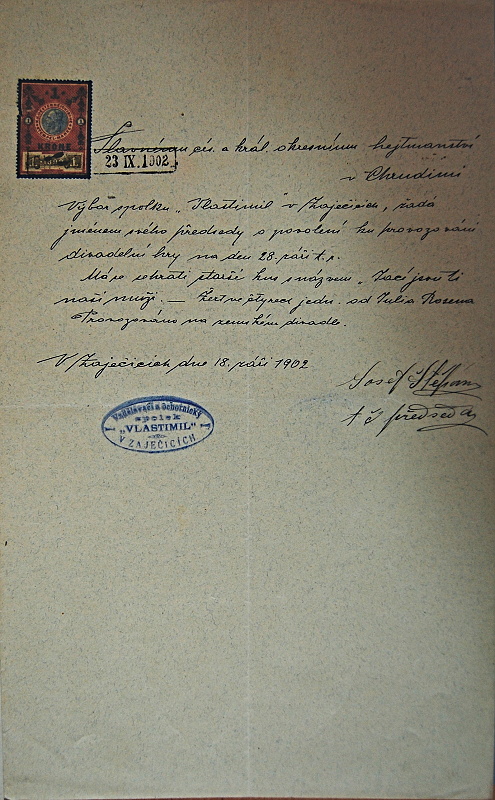 1
KRONE
23 IX. 1902
Slavnému cís. a král. okresnímu hejtmanství
v Chrudimi
Výbor spolku „Vlastimil" v Zaječicích, žádá
jménem svého předsedy o povolení ku provozování
divadelní hry na den 28. září t. r.
Má se sehráti starší kus s názvem „Jací jsou ti
naši muži. — Žert ve čtyrech jedn. od Julia Rosena
Provozováno na zemském divadle.
V Zaječicích dne 18. září 1902
Josef Štěpán
t. č. předseda
Vzdělávací a Ochotnický
spolek
„VLASTIMIL"
V ZAJEČICÍCH